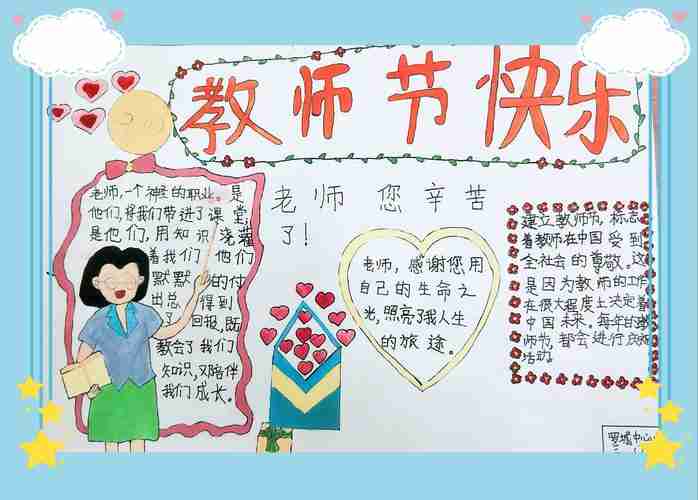 教师节快乐
老师，一个神圣的职业。是
他们，将我们带进了课堂；
是他们，用知识浇灌
着我们，他们
默默的付
出总得到
了回报，既
教会了我们
知识，又陪伴
我们成长。
老师 您辛苦
了！
老师，感谢您用
自己的生命之
光，照亮了我人生
的旅途。
建立教师节，标志
着教师在中国受到
全社会的尊敬。这
是因为教师的工作
在很大程度上决定着
中国未来。每年的教
师节，都会进行
活动。
罗城中心